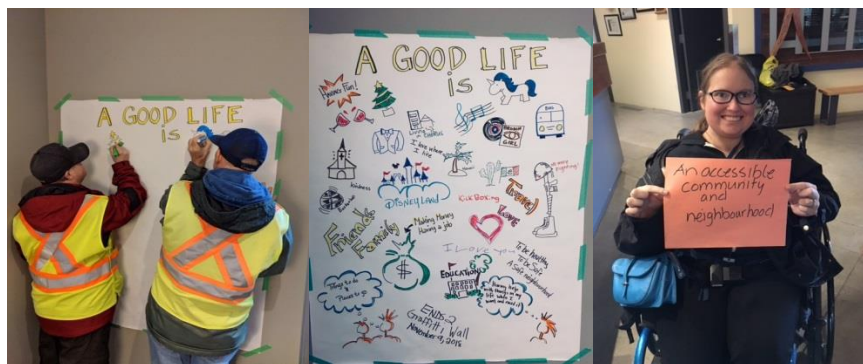 A GOOD LIFE
is
A GOOD LIFE
is
Having Fun!
BUS
BROWN
GIRL
I love where
I live
kindness
DISNEYLAND
Kick Boxing
Travel
Friends
Family
Making Money
Having a job
HOPE
I Love you
To be healthy
To be Safe
A Safe neighbourhood
EDUCATION
Things to do
Places to go
Having help
ENDS-2
Graffiti Wall
November 13, 2018
An accessible
Community
and
neighbourhood